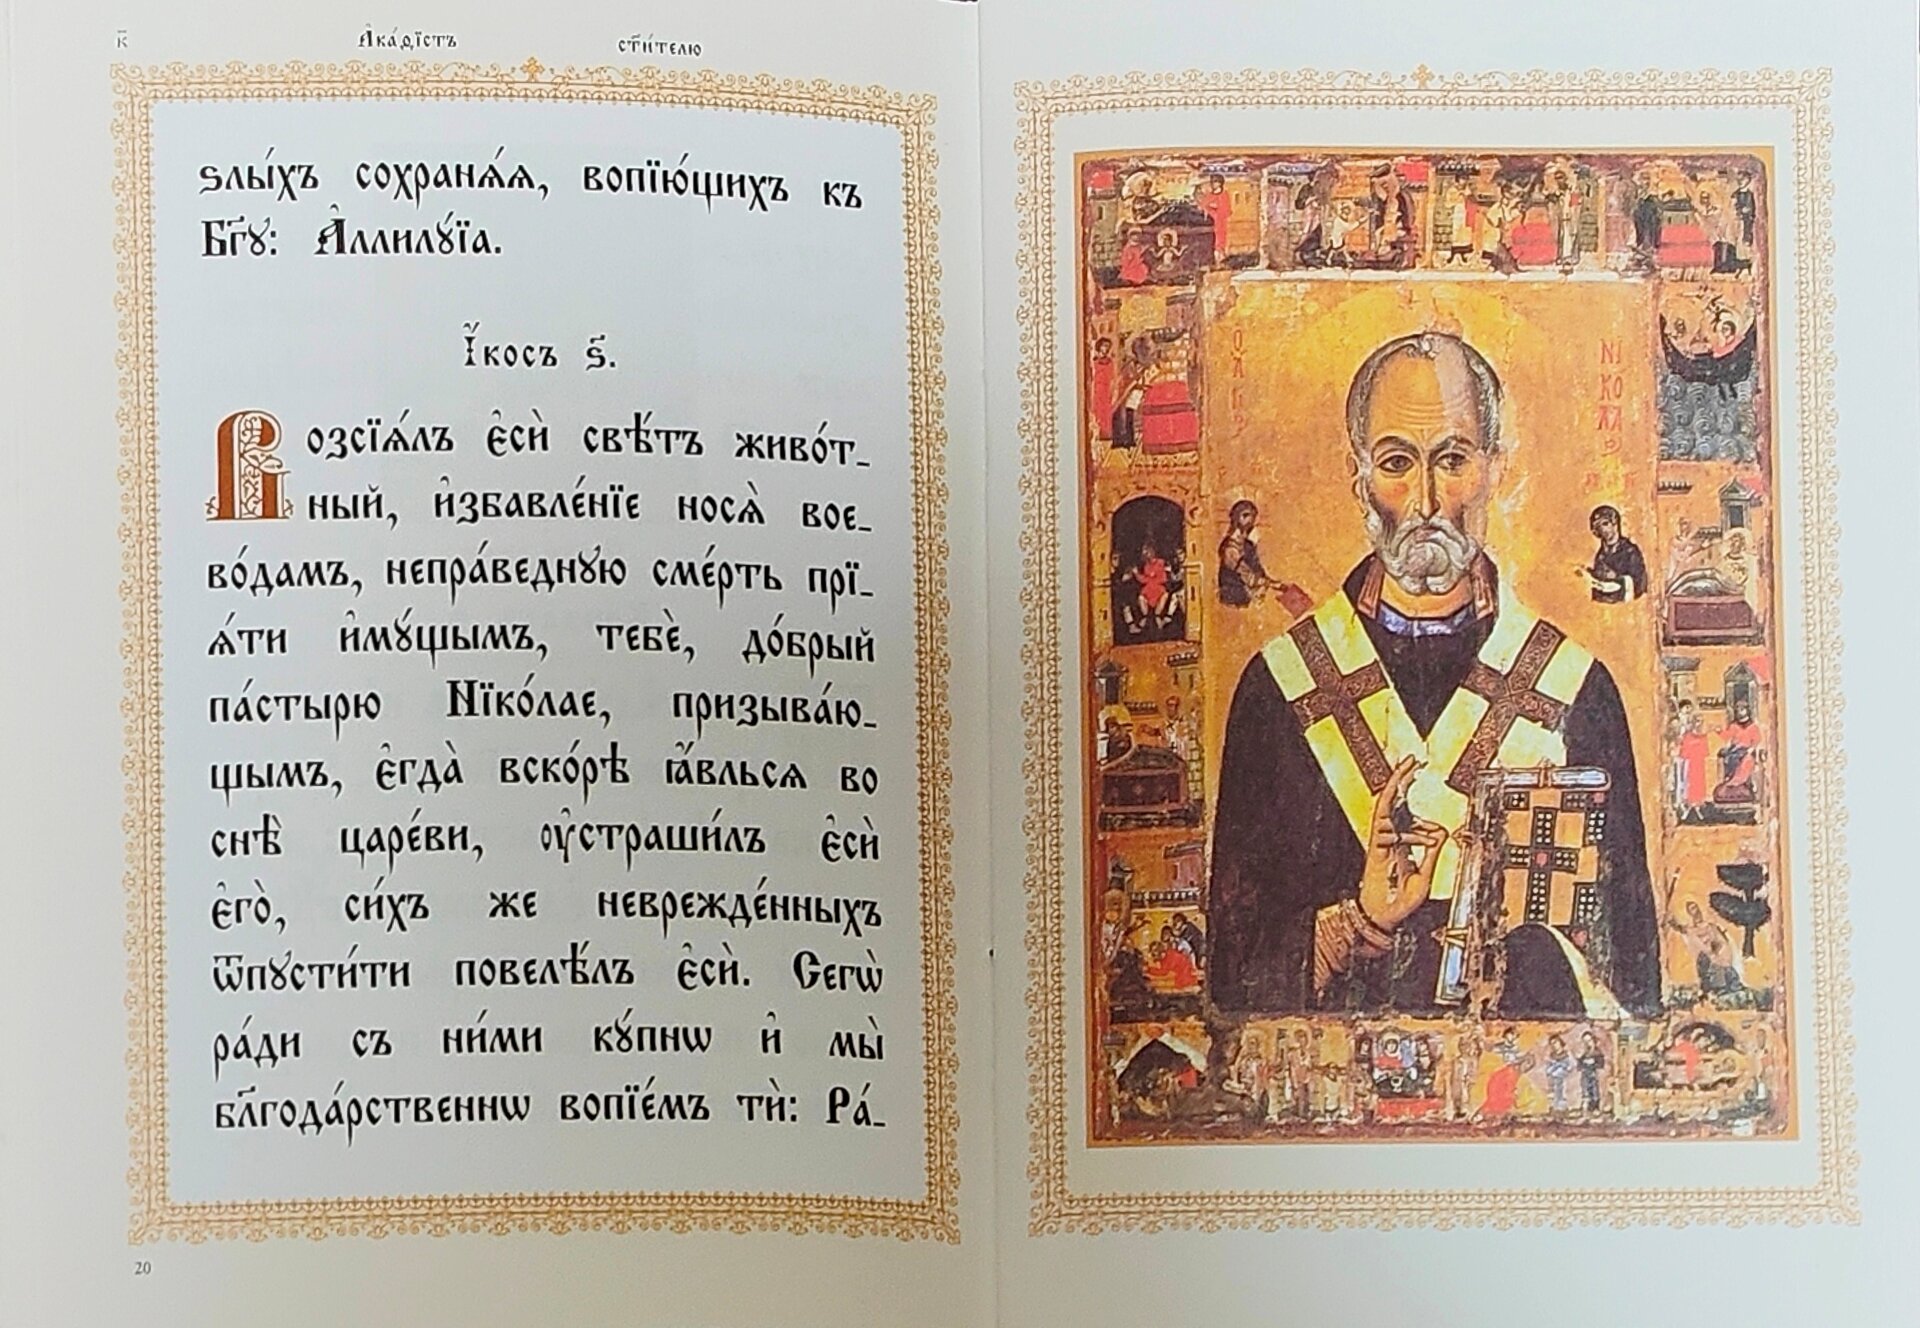 к҃ А҆ка́ѳїстъ ст҃и́телю
ѕлы́хъ сохранѧ́ѧ, вопїю́щихъ къ
Бг҃ꙋ: А҆ллилꙋ́їа.
І҆́косъ ѕ҃.
Возсїѧ́лъ є҆сѝ свѣ́тъ живо́т_
ный, и҆збавле́нїе носѧ̀ вое_
во́дамъ, непра́веднꙋю сме́рть прї_
ѧ́ти и҆мꙋ́щымъ, тебѐ, до́брый
па́стырю Нїко́лае, призыва́ю_
щымъ, є҆гда̀ вско́рѣ ꙗ҆́вльсѧ во
снѣ̀ царе́ви, ᲂу҆страши́лъ є҆сѝ
є҆го̀, си́хъ же неврежде́нныхъ
ѿпꙋсти́ти повелѣ́лъ є҆сѝ. Сегѡ̀
ра́ди съ ни́ми кꙋ́пнѡ и҆ мы̀
бл҃года́рственнѡ вопїе́мъ тѝ: Ра́_
20
Ο ΑΓΙΟC
ΝΙΚΟΛΑΟC